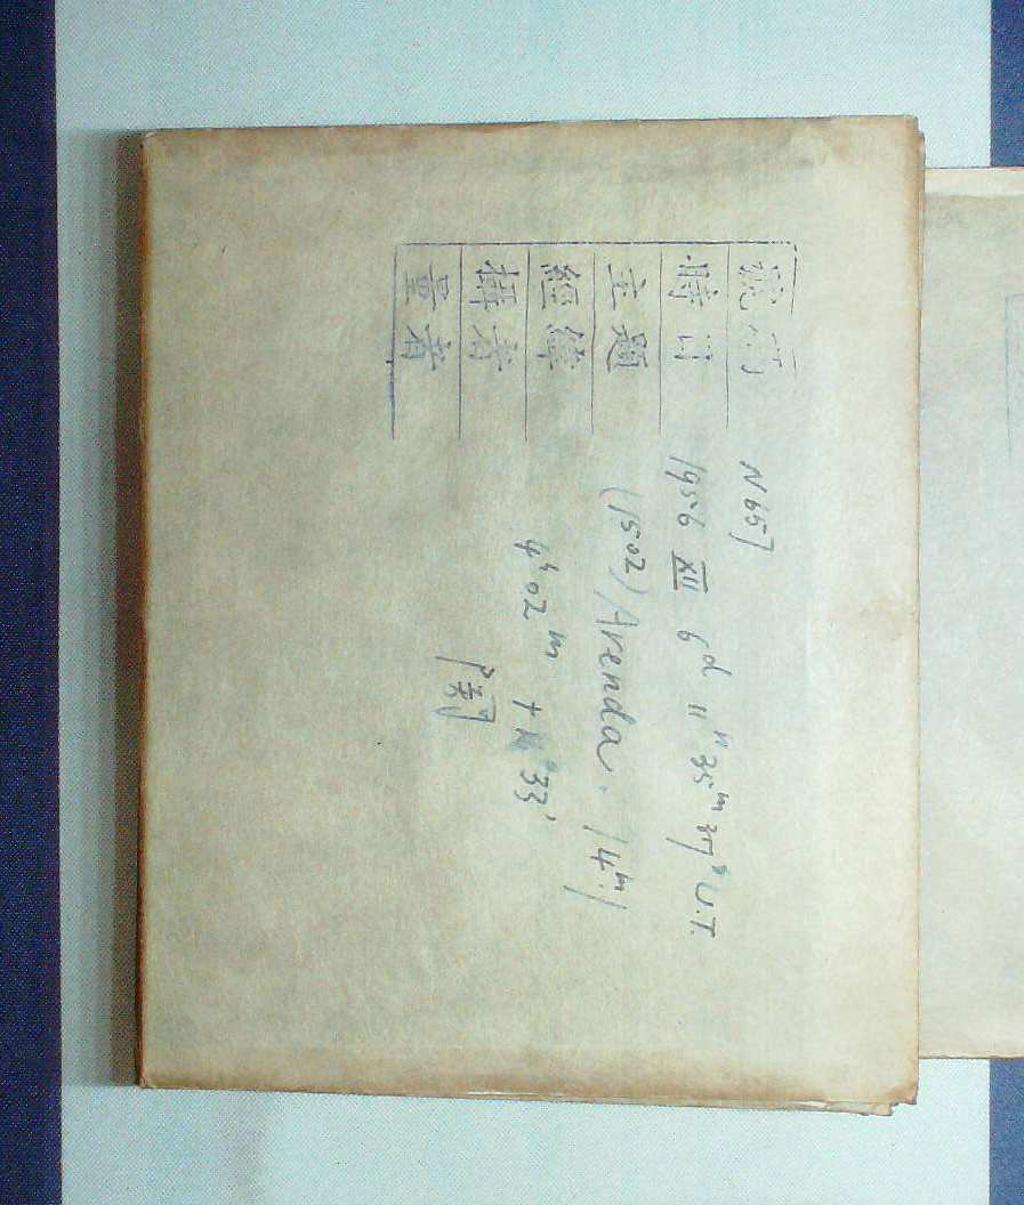 號 N657
時日 1956 XII 6ᵈ 11ʰ 35ᵐ 37ˢ U.T.
主題 (1502) Arenda. (14ᵐ.)
經緯 4ʰ02ᵐ + 33'
攝者
量者